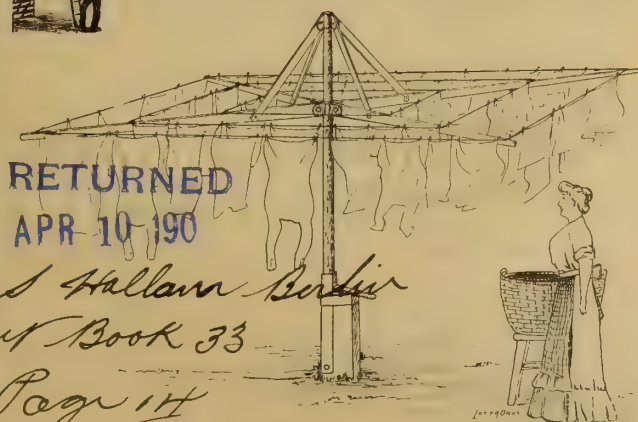 RETURNED
APR 10 190
S Hallam Berlin
Book 33
Page 14